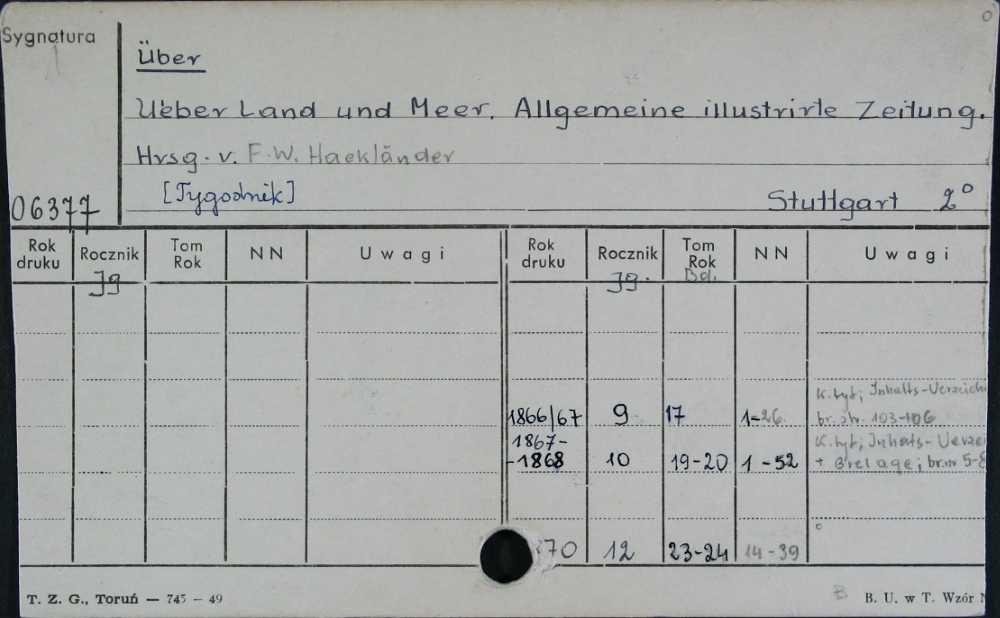 Sygnatura
Über
Ueber Land und Meer. Allgemeine illustrirte Zeitung.
Hrsg. v. F. W. Hackländer
[Tygodnik] Stuttgart 2°
06377
Rok druku Rocznik Tom Rok NN Uwagi Rok druku Rocznik Tom Rok NN Uwagi
Jg Jg. Bd.
K. tyt; Inhalts-Verzeich
1866/67 9 17 1-26 br. str. 103-106
1867- K. tyt; Inhalts-Verzei
-1868 10 19-20 1-52 br. nr 5-
70 12 23-24 14-39
T. Z. G., Toruń — 745 — 49 B B. U. w T. Wzór